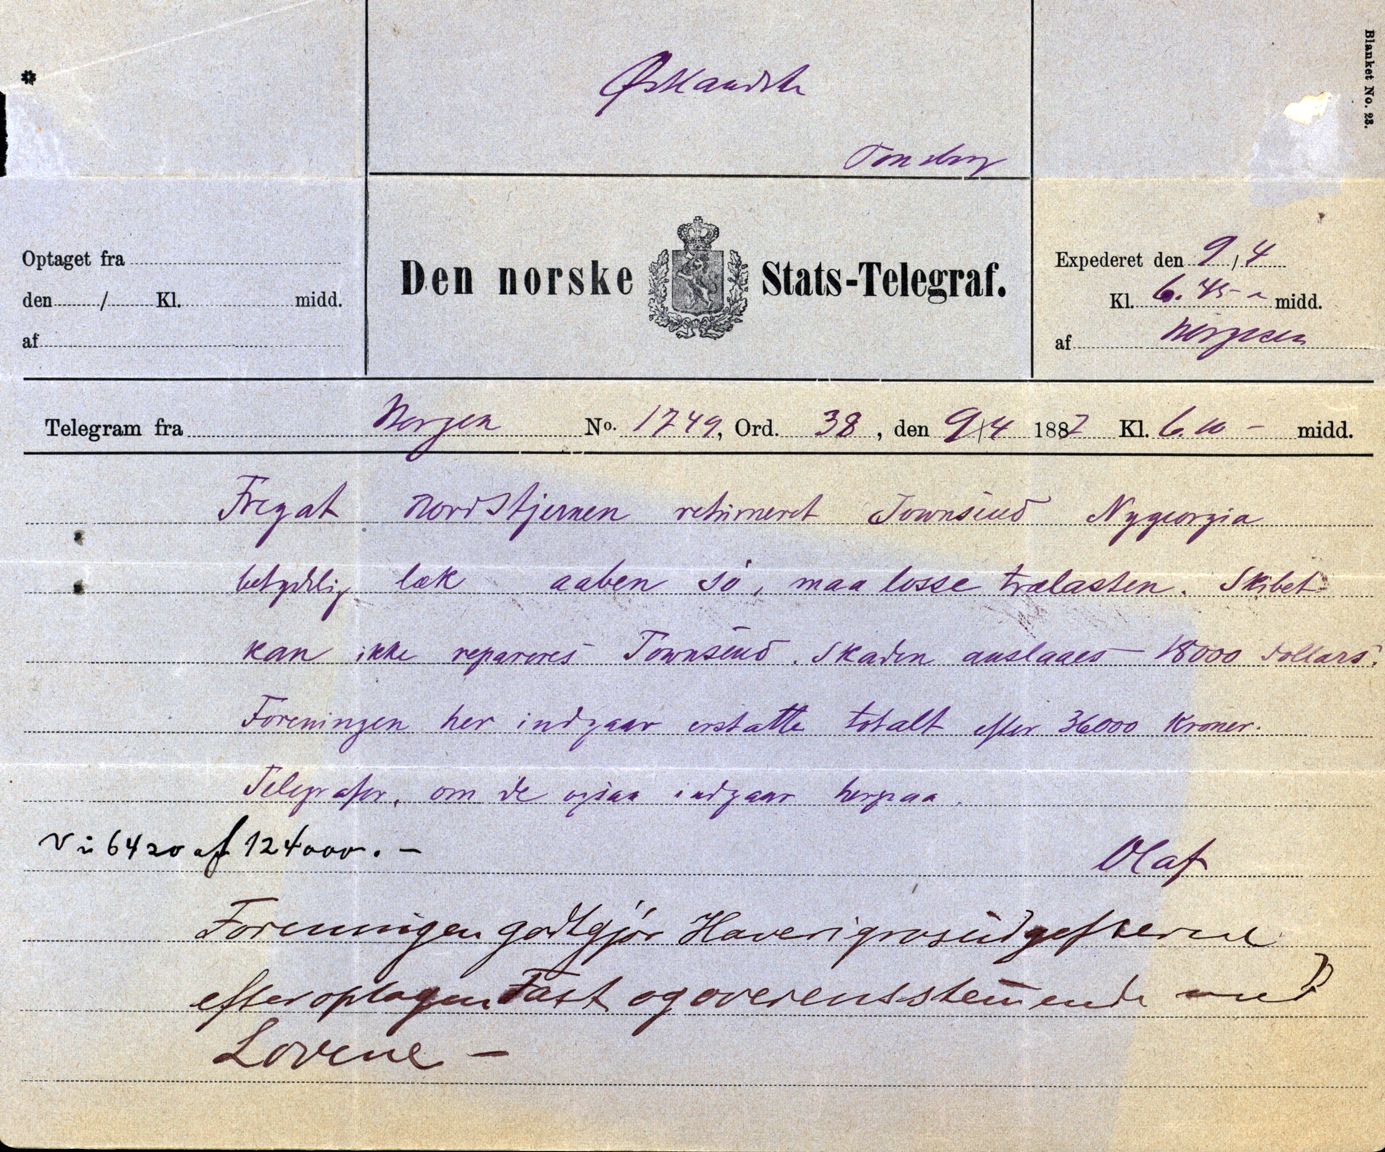 Blanket No. 23.
Østlandske
Tønsberg
Optaget fra
den / Kl. midd.
af
Den norske Stats-Telegraf.
Expederet den 9/4
Kl. 6.45 midd.
af
Telegram fra No. 1749, Ord. 38, den 9/4 1882 Kl. 6.10 - midd.
Fregat Nordstjernen returneret Townsend Nygeorgia
betydelig læk aaben sö, maa losse trælasten. Skibet
kan ikke repareres Townsend. Skaden anslaaes 18000 dollars.
Foreningen her indgaar erstatte totalt efter 36000 Kroner.
Telegrafer, om de ogsaa indgaar herpaa.
Vi 6420 af 124000. -
Olaf
Foreningen godtgjør Haverigrosudgifterne
efter optagen Tast og overensstemmende med
Lovene -